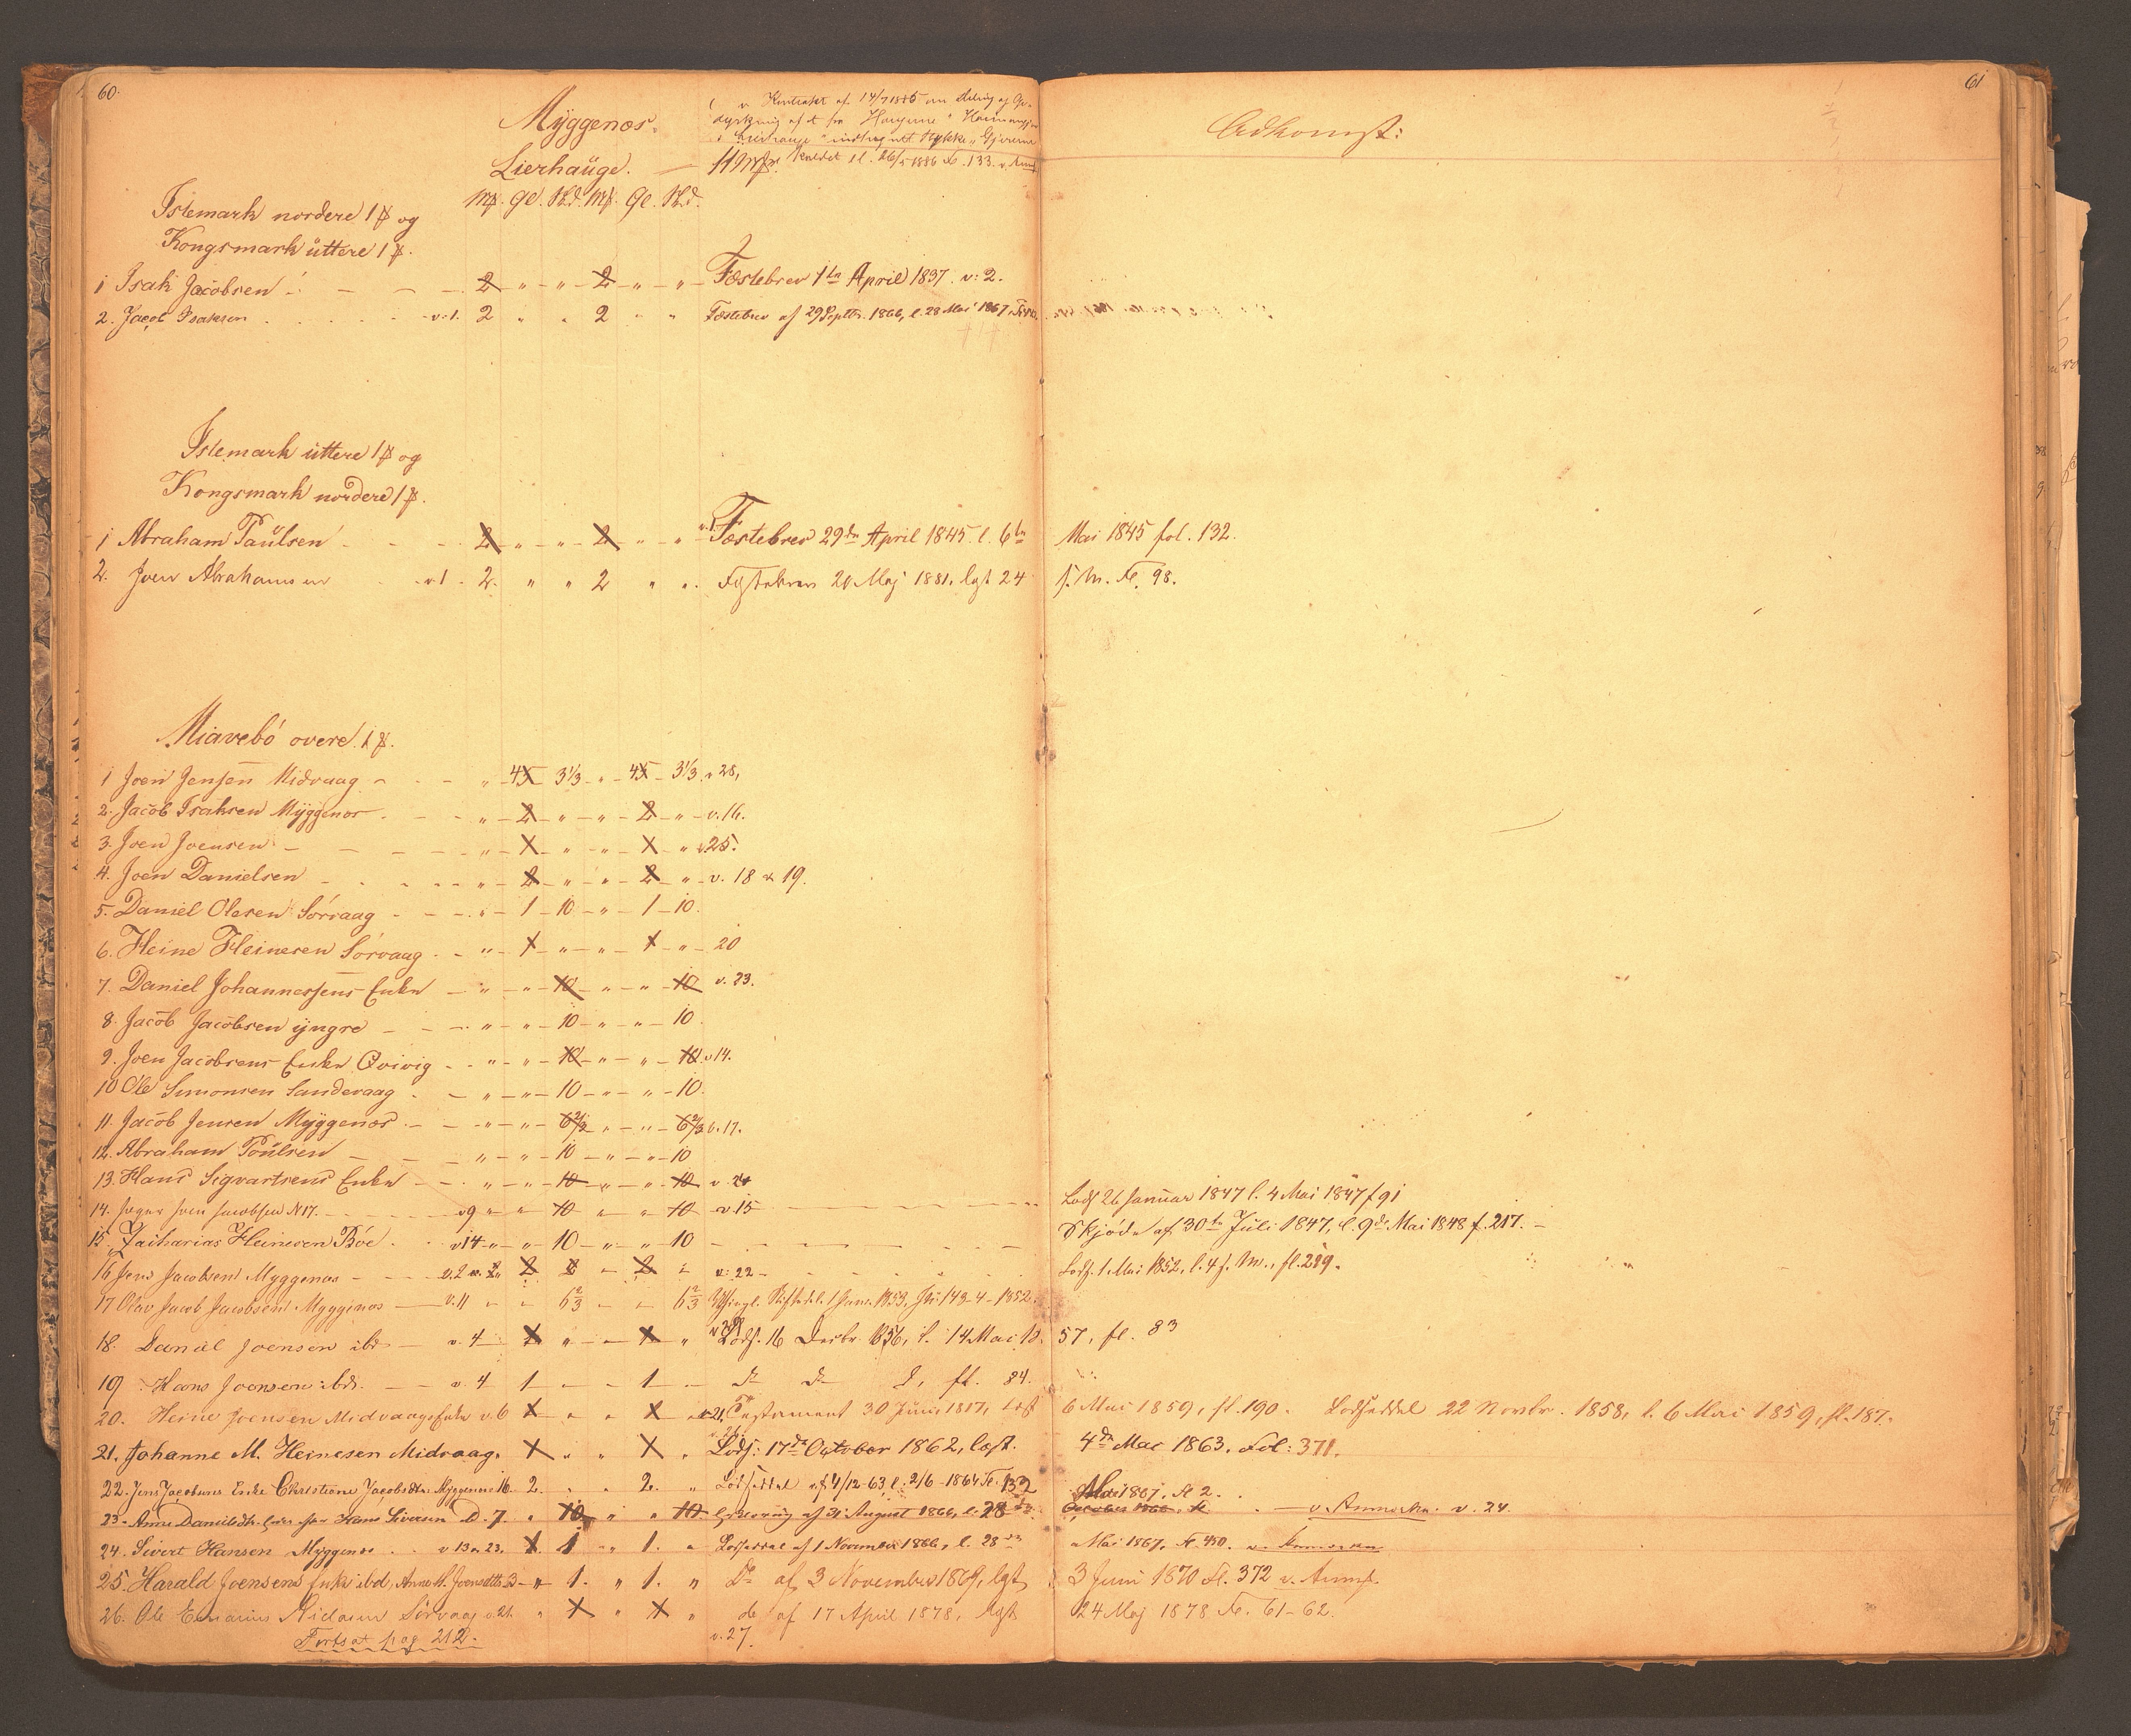 60.
61
Myggenæs.
Kontrakt af 14/7 1885 om
Adkomst:
Lierhaüge. — 11 Mk.
Mk. Gl. Skd. Mk. Gl. Skd.
Istemark nordere 1 Mk og
Kongsmark üttere 1 Mk.
1 Isak Jacobsen - - - 2 " " 2 " " Fæstebrev 1ste April 1837. v: 2.
2. Jacob Isaksen v. 1. 2 " " 2 " " Fæstebrev af 29 Septbr. 1866, l. 28 Mai 1867,
Istemark üttere 1 Mk og
Kongsmark nordere 1 Mk.
1 Abraham Paülsen - - - 2 " " 2 " " Fæstebrev 29de April 1845. l. 6te Mai 1845 fol. 132.
2. Joen Abrahamsen v 1. 2. " " 2 " " Fæstebrev 20 Maj 1881, lgst 24 s. M. Fo. 98.
Miavebö overe. 1 Mk.
1 Joen Jensen Midvaag - - " 45 3 1/3 " 45 3 1/3 v 28,
2. Jacob Isaksen Myggenæs - " 2 " " 2 " v. 16.
3. Joen Joensen - - - " 1 " " 1 " v 25.
4. Joen Danielsen - - " 2 " " 2 " v. 18 & 19.
5. Daniel Olesen Sörvaag - " 1 10 " 1 10.
6. Heine Heinesen Sörvaag - " 1 " " 1 " 20
7. Daniel Johannessens Enke - " " 10 " " 10 v. 23.
8. Jacob Jacobsen yngre - - " " 10 " " 10.
9. Joen Jacobsens Enke Qvivig - " " 10 " " 10 v 14.
10 Ole Simonsen Sandevaag - " " 10 " " 10.
11. Jacob Jensen Myggenæs - " " 6 2/3 " " 6 2/3 v. 17.
12. Abraham Poülsen - - " " 10 " " 10
13. Hans Sigvartsens Enke - " " 10 " " 10 v. 24
14. Joen Jacobsen N 17. v 9 " " 10 " " 10 v 15 Lods. 26 Januar 1847 l. 4 Mai 1847 f 91
15. Zacharias Heinesen Böe. v 14 " " 10 " " 10 - Skjöde af 30te Juli 1847, l. 9de Mai 1848 f. 217. -
16 Jens Jacobsen Myggenæs - v. 2 " 2 " 2 " v: 22 - Lods. 1 Mai 1852, l. 4 s. M., fl. 289.
17 Olav Jacob Jacobsen Myggenæs - v. 11 " " 6 2/3 " " 6 2/3 1 Janr. 1853, 149 - 4 - 1852.
18. Daniel Joensen ibd - v. 4 1 " " 1 " Lods. 16 Decbr. 1856, l. 14 Mai 1857, fl. 83
19 Hans Joensen ibd. - v. 4 1 - - 1 - do do l, fl. 84.
20. Heine Joensen Midvaags Enke v. 6 1 " " 1 " v 21. Testament 30 Juni 1817, læst 6 Mai 1859, fl. 190. Lodseddel 22 Novbr. 1858, l. 6 Mai 1859, fl. 187.
21. Johanne M. Heinesen Midvaag. 1 " " 1 " Lods: 17de October 1862, læst. 4de Mai 1863. Fol: 371.
22. Jens Jacobsens Enke Christiane Jacobsdtr. Myggenæs 16. 2. " " 2. " Lodseddel af 4/12-63, l. 2/6-1864 Fo. 132
23. Anne Danielsdtr. Hans Siversen D. 7. " 10 " " 10 Erklæring af 31 August 1866, l. 28 Mai 1867, fl 2. October 1866, fl - v. Anmærkn. v. 24.
24. Sivert Hansen Myggenæs v 13 & 23. 1. 1 " 1. " Lodseddel af 1 November 1866, l. 28de Mai 1867. fl. 450. v. Anmærkn.
25. Harald Joensens Enke ibd, Anne M. Joensdtr. 3 - " 1. " 1. " Do af 3 November 1869, lgst 3 Juni 1870 Fl. 372 v. Anmk.
26. Ole Sörvaag v. 21. " 1 " 1 " do af 17 April 1878, lgst 24 Maj 1878 Fo. 61-62.
v. 27.
Fortsat pag 212.